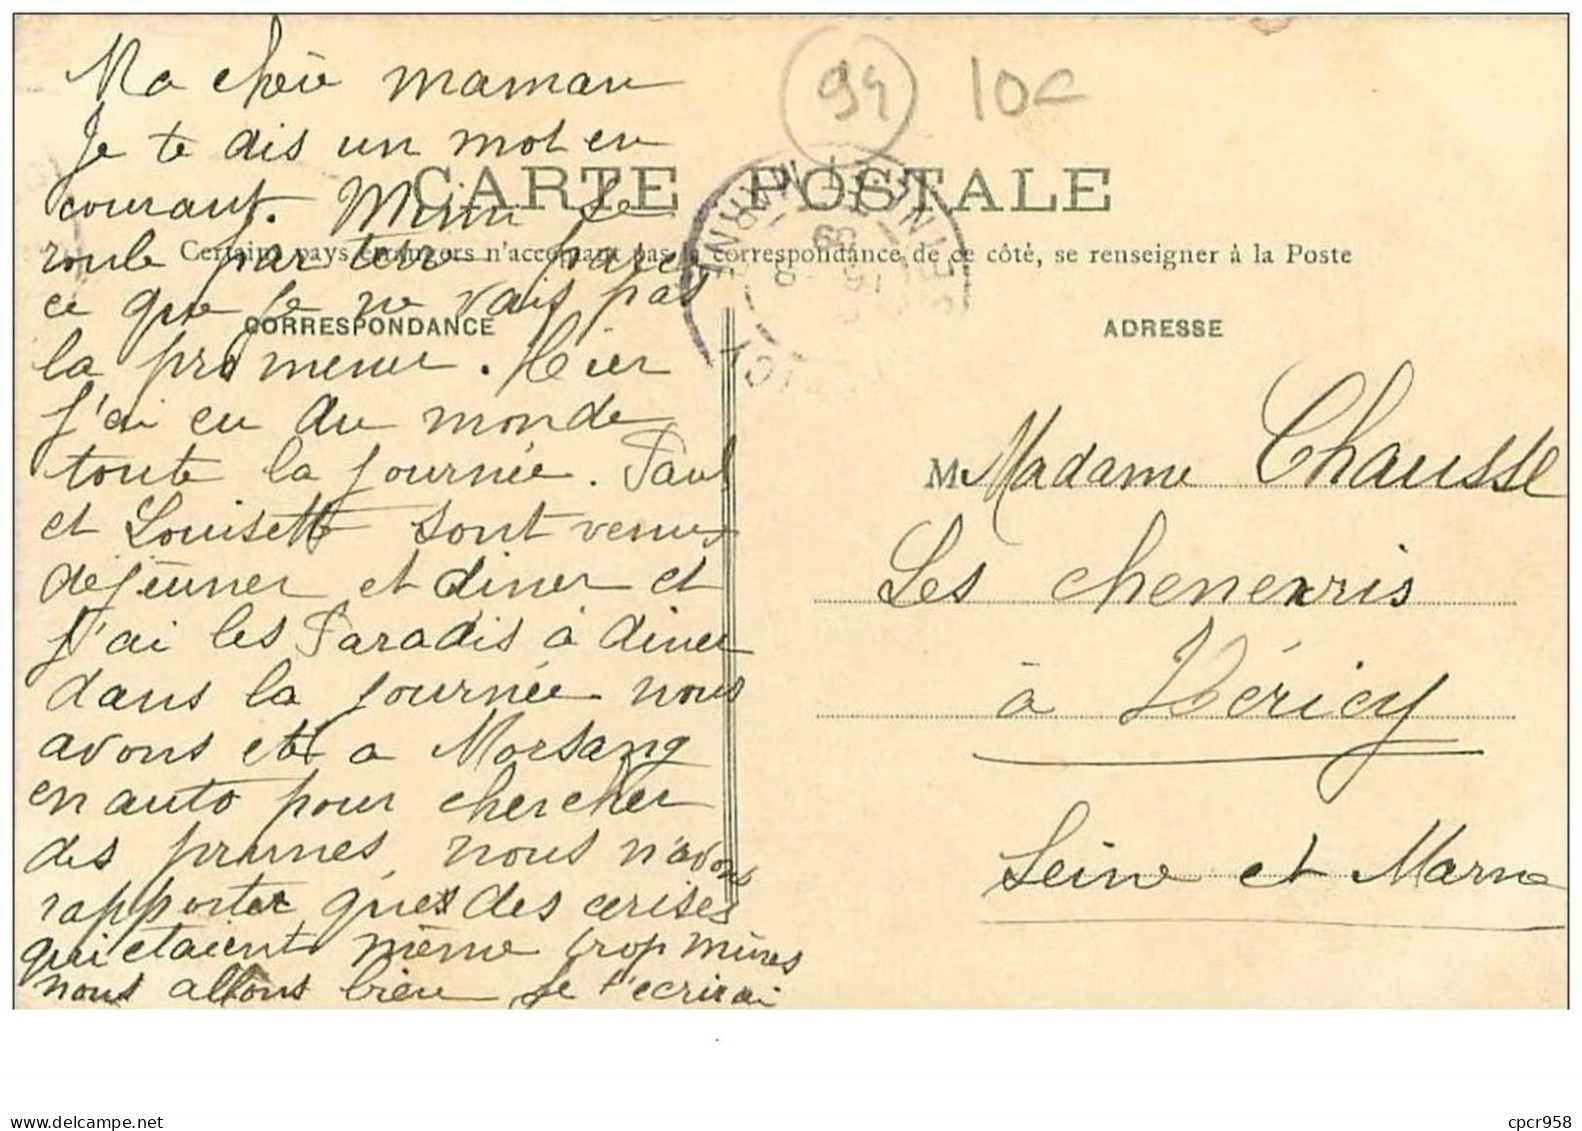 94 10c
CARTE POSTALE
Certains pays étrangers n'acceptant pas la correspondance de ce côté, se renseigner à la Poste
CORRESPONDANCE
Ma chère maman
Je te dis un mot en
courant. Mimi se
roule par terre parce
ce que je ne vais pas
la promener. Hier
j'ai eu du monde
toute la journée. Paul
et Louisette sont venus
dejeuner et diner et
j'ai les Paradis à diner
dans la journée nous
avons eté a Morsang
en auto pour chercher
des prunes nous n'avons
rapporter que des cerises
qui etaient même trop mûres
nous allons bien je t'ecrirai
ADRESSE
M Madame Chausse
Les chenevris
à Héricy
Seine et Marne
www.delcampe.net
cpcr958